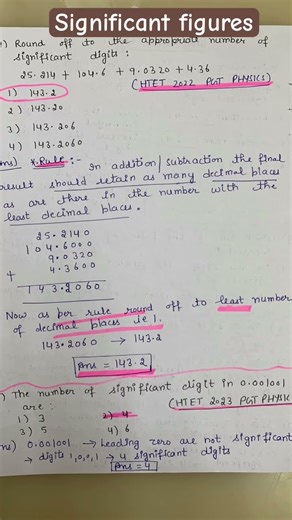 Significant figures
) Round off to the appropriate number of
significant digits :
25.214 + 104.6 + 9.0320 + 4.36
(HTET 2022 PGT PHYSICS)
1) 143.2
2) 143.20
3) 143.206
4) 143.2060
ns) *Rule :- In addition/subtraction the final
result should retain as many decimal places
as are there in the number with the
least decimal places.
25.2140
104.6000
9.0320
+ 4.3600
143.2060
Now as per rule round off to least number
of decimal places i.e 1.
143.2060 → 143.2
Ans = 143.2
) The number of significant digit in 0.001001
are :
(HTET 2023 PGT PHYSIC
1) 3 2) 4
3) 5 4) 6
ns) 0.001001 → Leading zero are not significant
→ digits 1,0,0,1 → 4 significant digits
Ans = 4